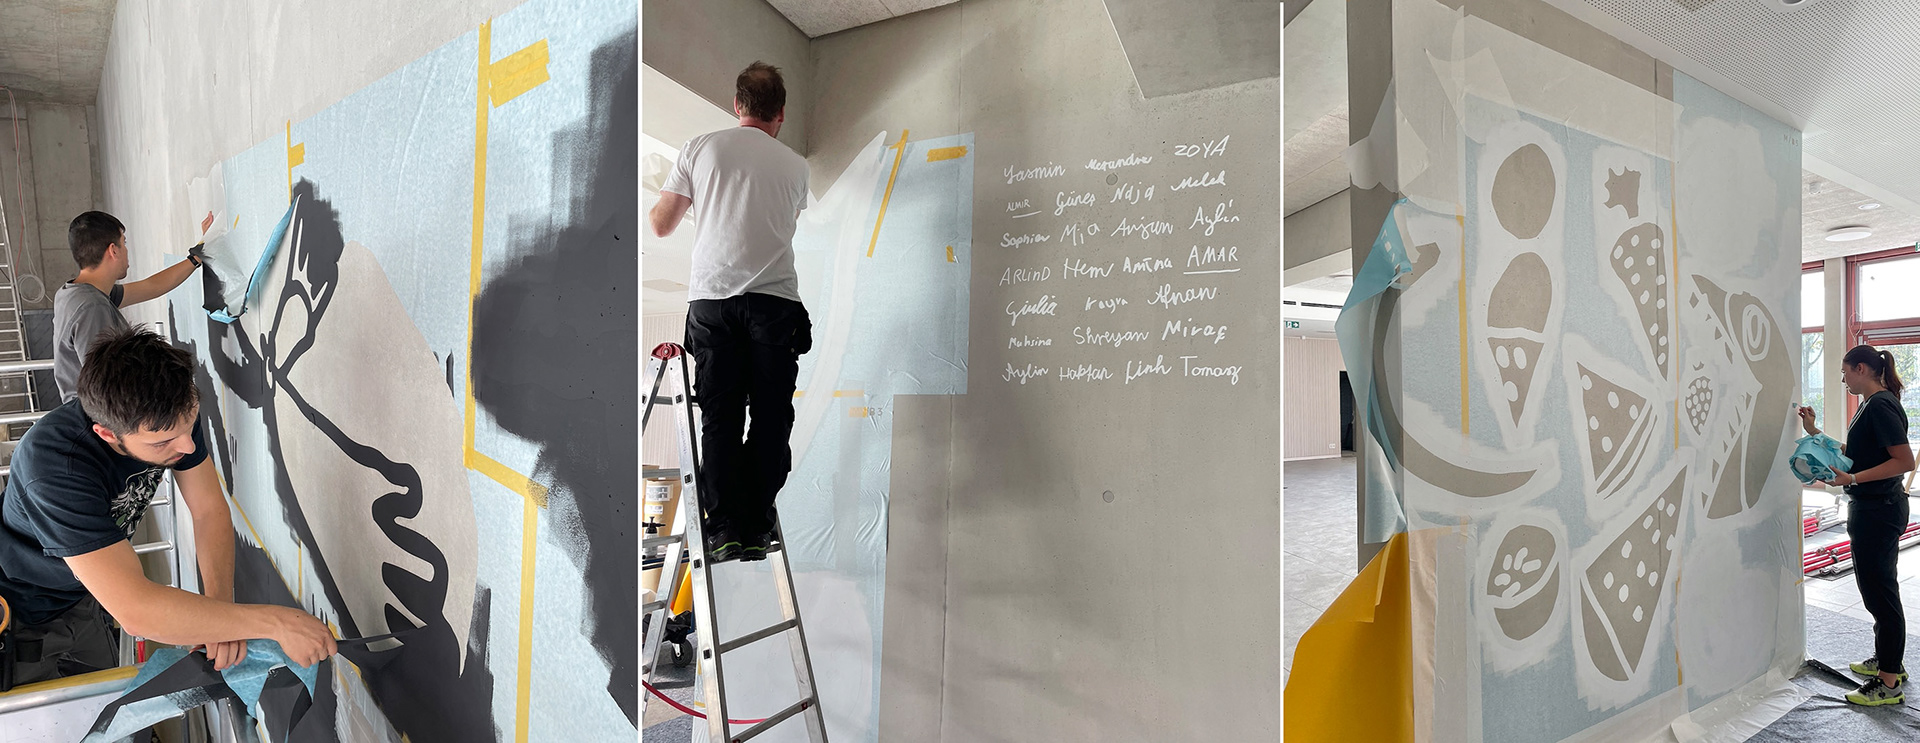 Yasmin Alexandra ZOYA
ALMIR Güneş Naja Melek
Sophian Mia Anisun Aylin
ARLIND Hem Amina AMAR
Giulia Kayra Afnan
Muhsina Shreyan Miraç
Aylin Haktan Linh Tomasz
B3